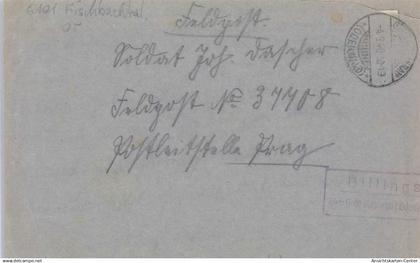 6101 Fischbachtal
Feldpost
Soldat Joh. Dascher
Feldpost No 37708
Postleitstelle Prag
Billings
Ansichtskarten-Center